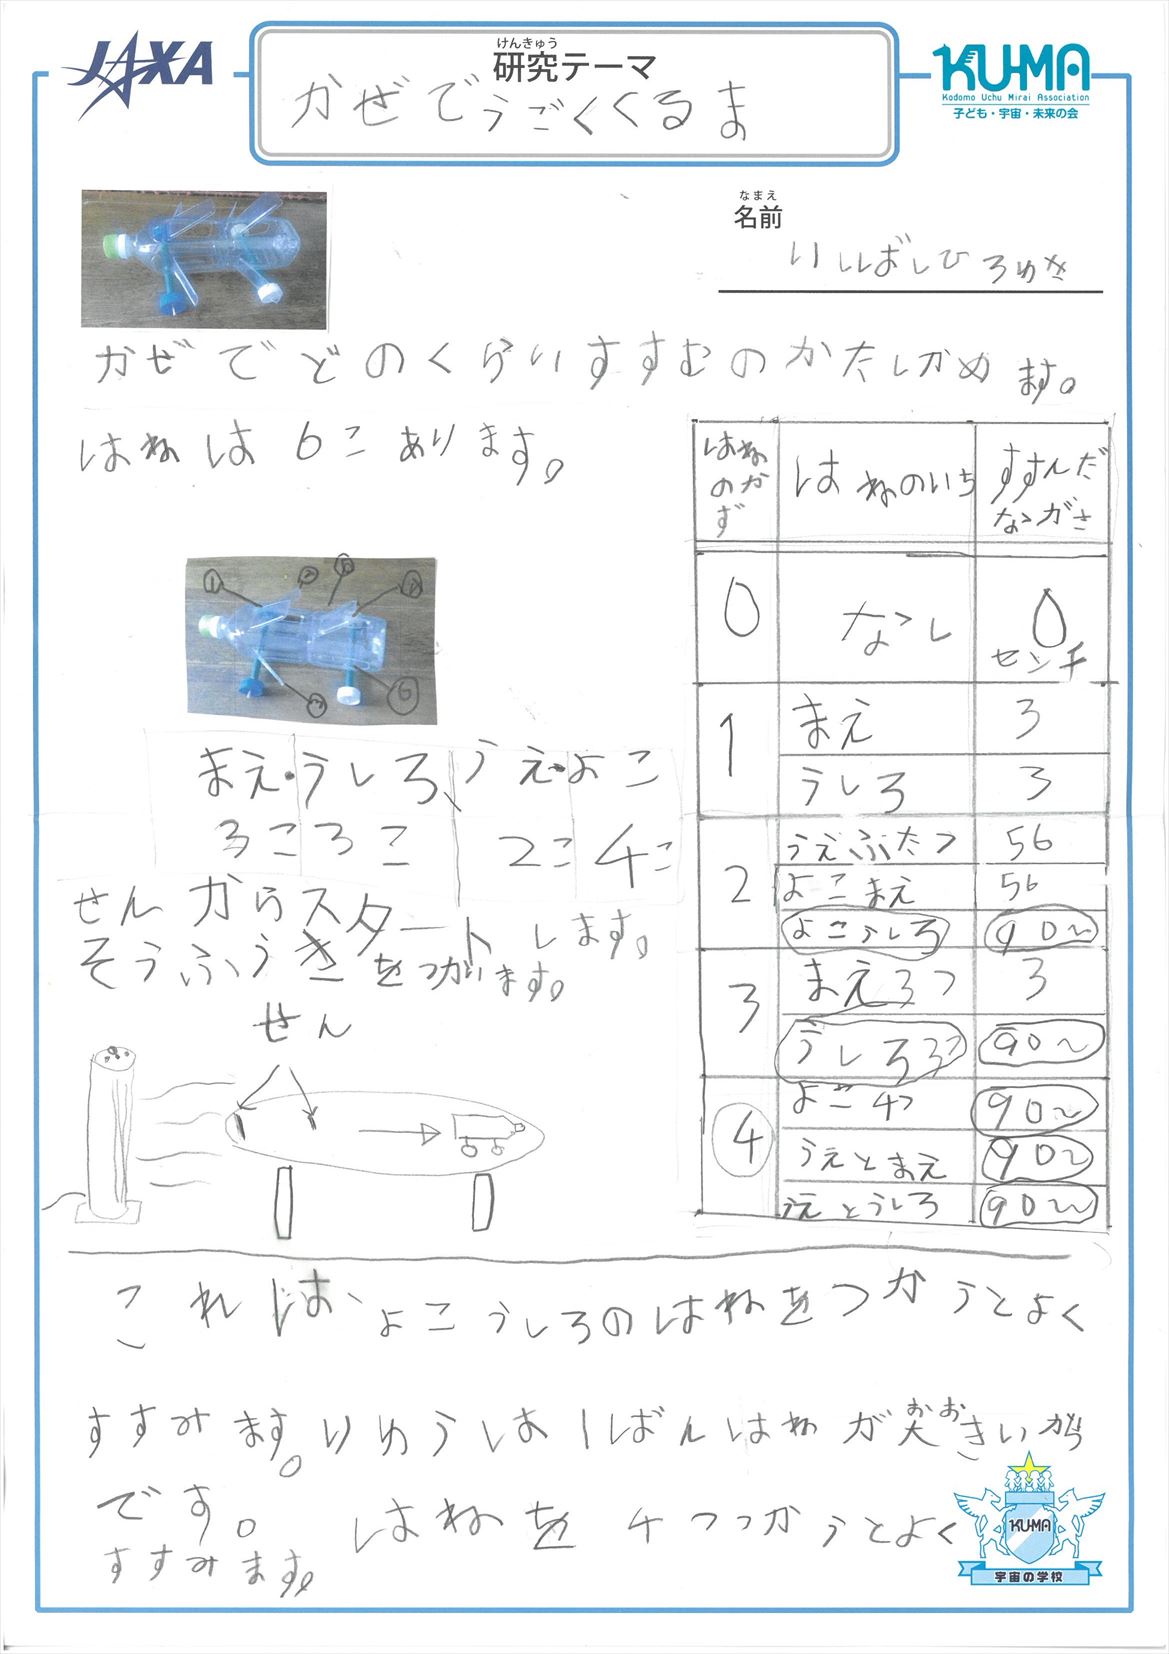 JAXA
けんきゅう
研究テーマ
かぜでうごくくるま
KU-MA
Kodomo Uchu Mirai Association
子ども・宇宙・未来の会
なまえ
名前
いしばしひろゆき
かぜでどのくらいすすむのかたしかめます。
はねは6こあります。
はねのかず はねのいち すすんだながさ
0 なし 0センチ
1 まえ 3
うしろ 3
2 うえふたつ 56
よこまえ 56
よこうしろ 90~
3 まえ3つ 3
うしろ3こ 90~
4 よこ4つ 90~
うえとまえ 90~
うえとうしろ 90~
① ② ⑥
まえ・うしろ、うえ・よこ
3こ3こ 2こ4こ
せんからスタートします。
そうふうきをつかいます。
せん
これは、よこうしろのはねをつかうとよく
すすみます。りゆうは1ばんはねが大おおきいから
です。はねを4つつかうとよく
すすみます。
KU-MA
宇宙の学校